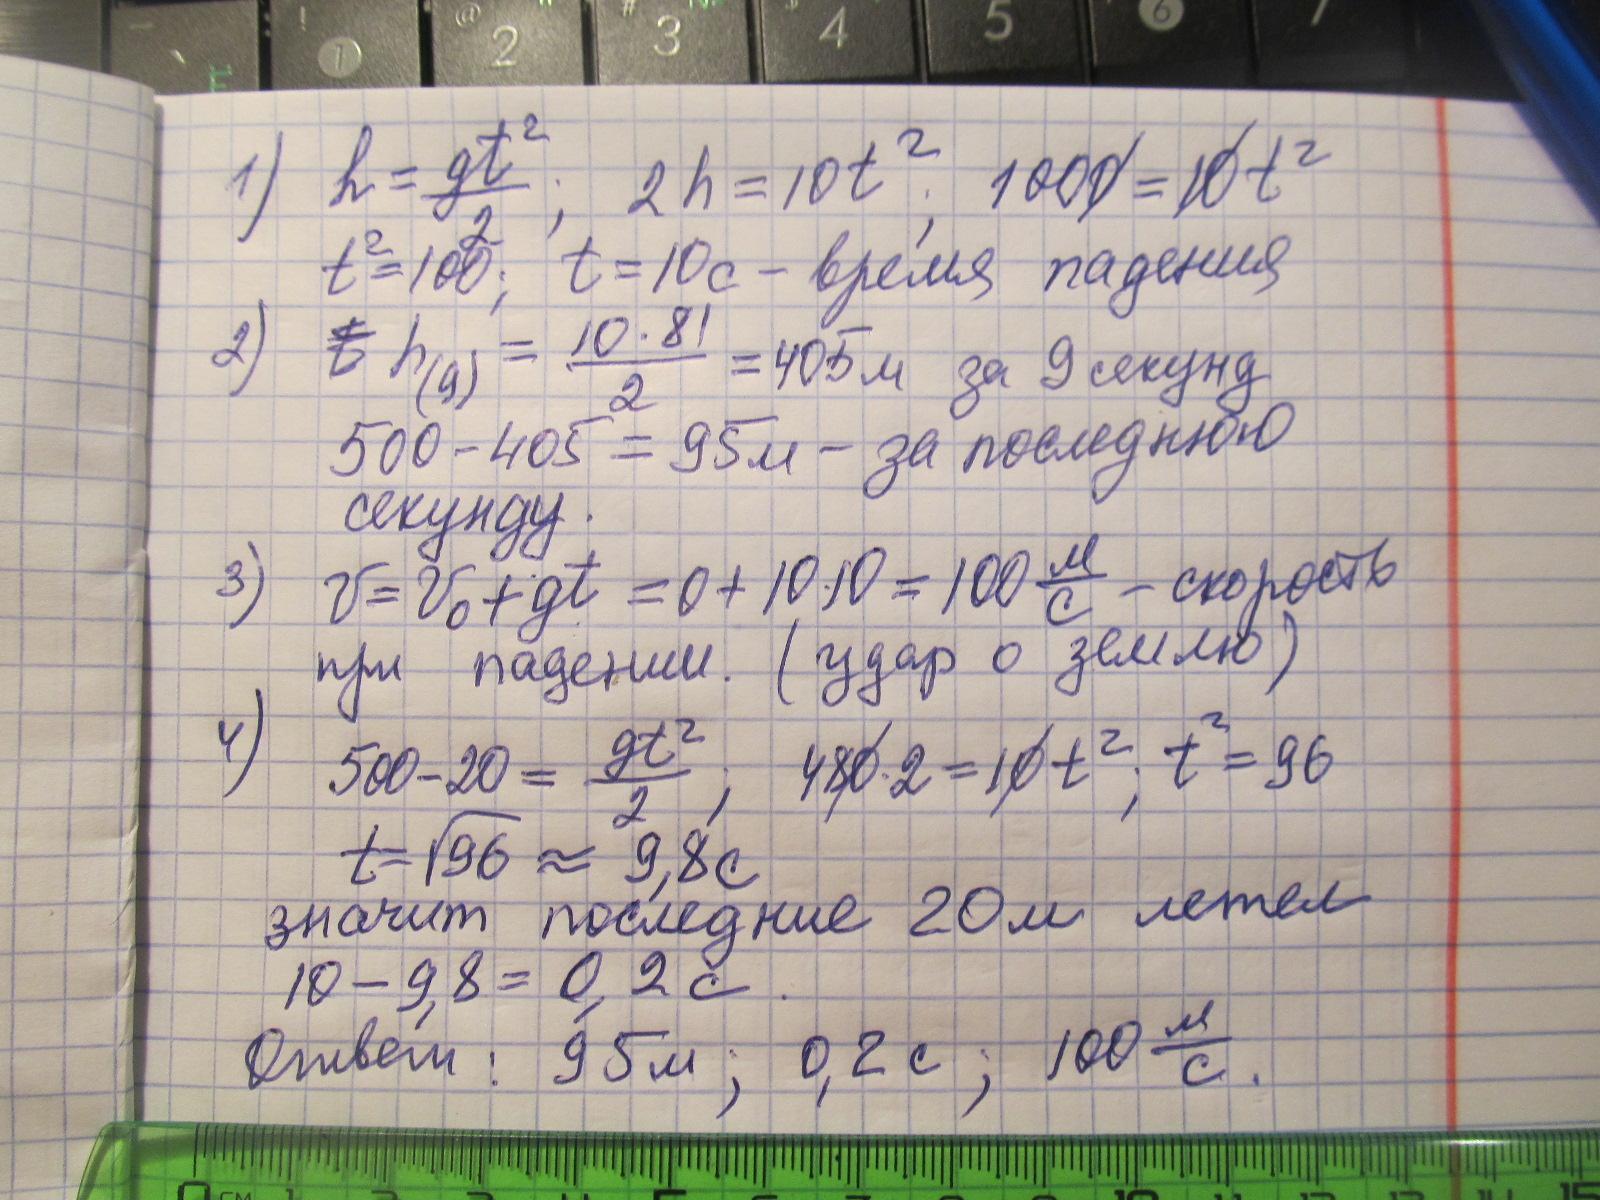 ! @ # $
1 2 3 4 5 6 7
1) h = gt²/2 ; 2h = 10t² ; 1000 = 10t²
t² = 100; t = 10с – время падения
2) t h(9) = 10·81/2 = 405м за 9 секунд
500 – 405 = 95м – за последнюю
секунду.
3) v = v₀ + gt = 0 + 10·10 = 100 м/с – скорость
при падении. (удар о землю)
4) 500 – 20 = gt²/2 ; 480·2 = 10t² ; t² = 96
t = √96 ≈ 9,8с
значит последние 20м летел
10 – 9,8 = 0,2 с.
Ответ: 95м ; 0,2 с ; 100 м/с.
0 см 1 2 3 4 5 6 7 8 9 10 11 12 13 14 15